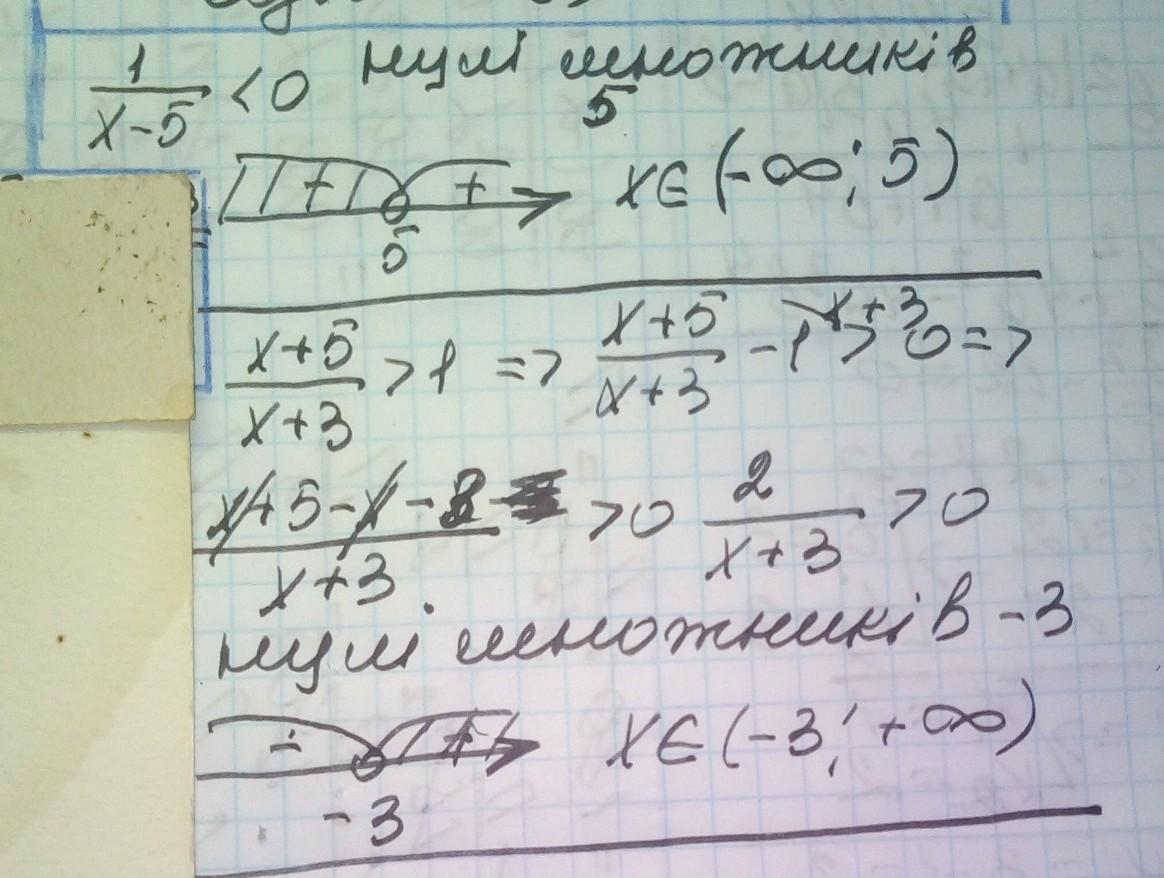 1/(x-5) < 0 нулі множників
5
+ +
5
x∈(-∞; 5)
(x+5)/(x+3) > 1 => (x+5)/(x+3) - 1 \x+3 > 0 =>
(x+5-x-3)/(x+3) > 0 2/(x+3) > 0
нулі множників -3
- +
-3
x∈(-3; +∞)